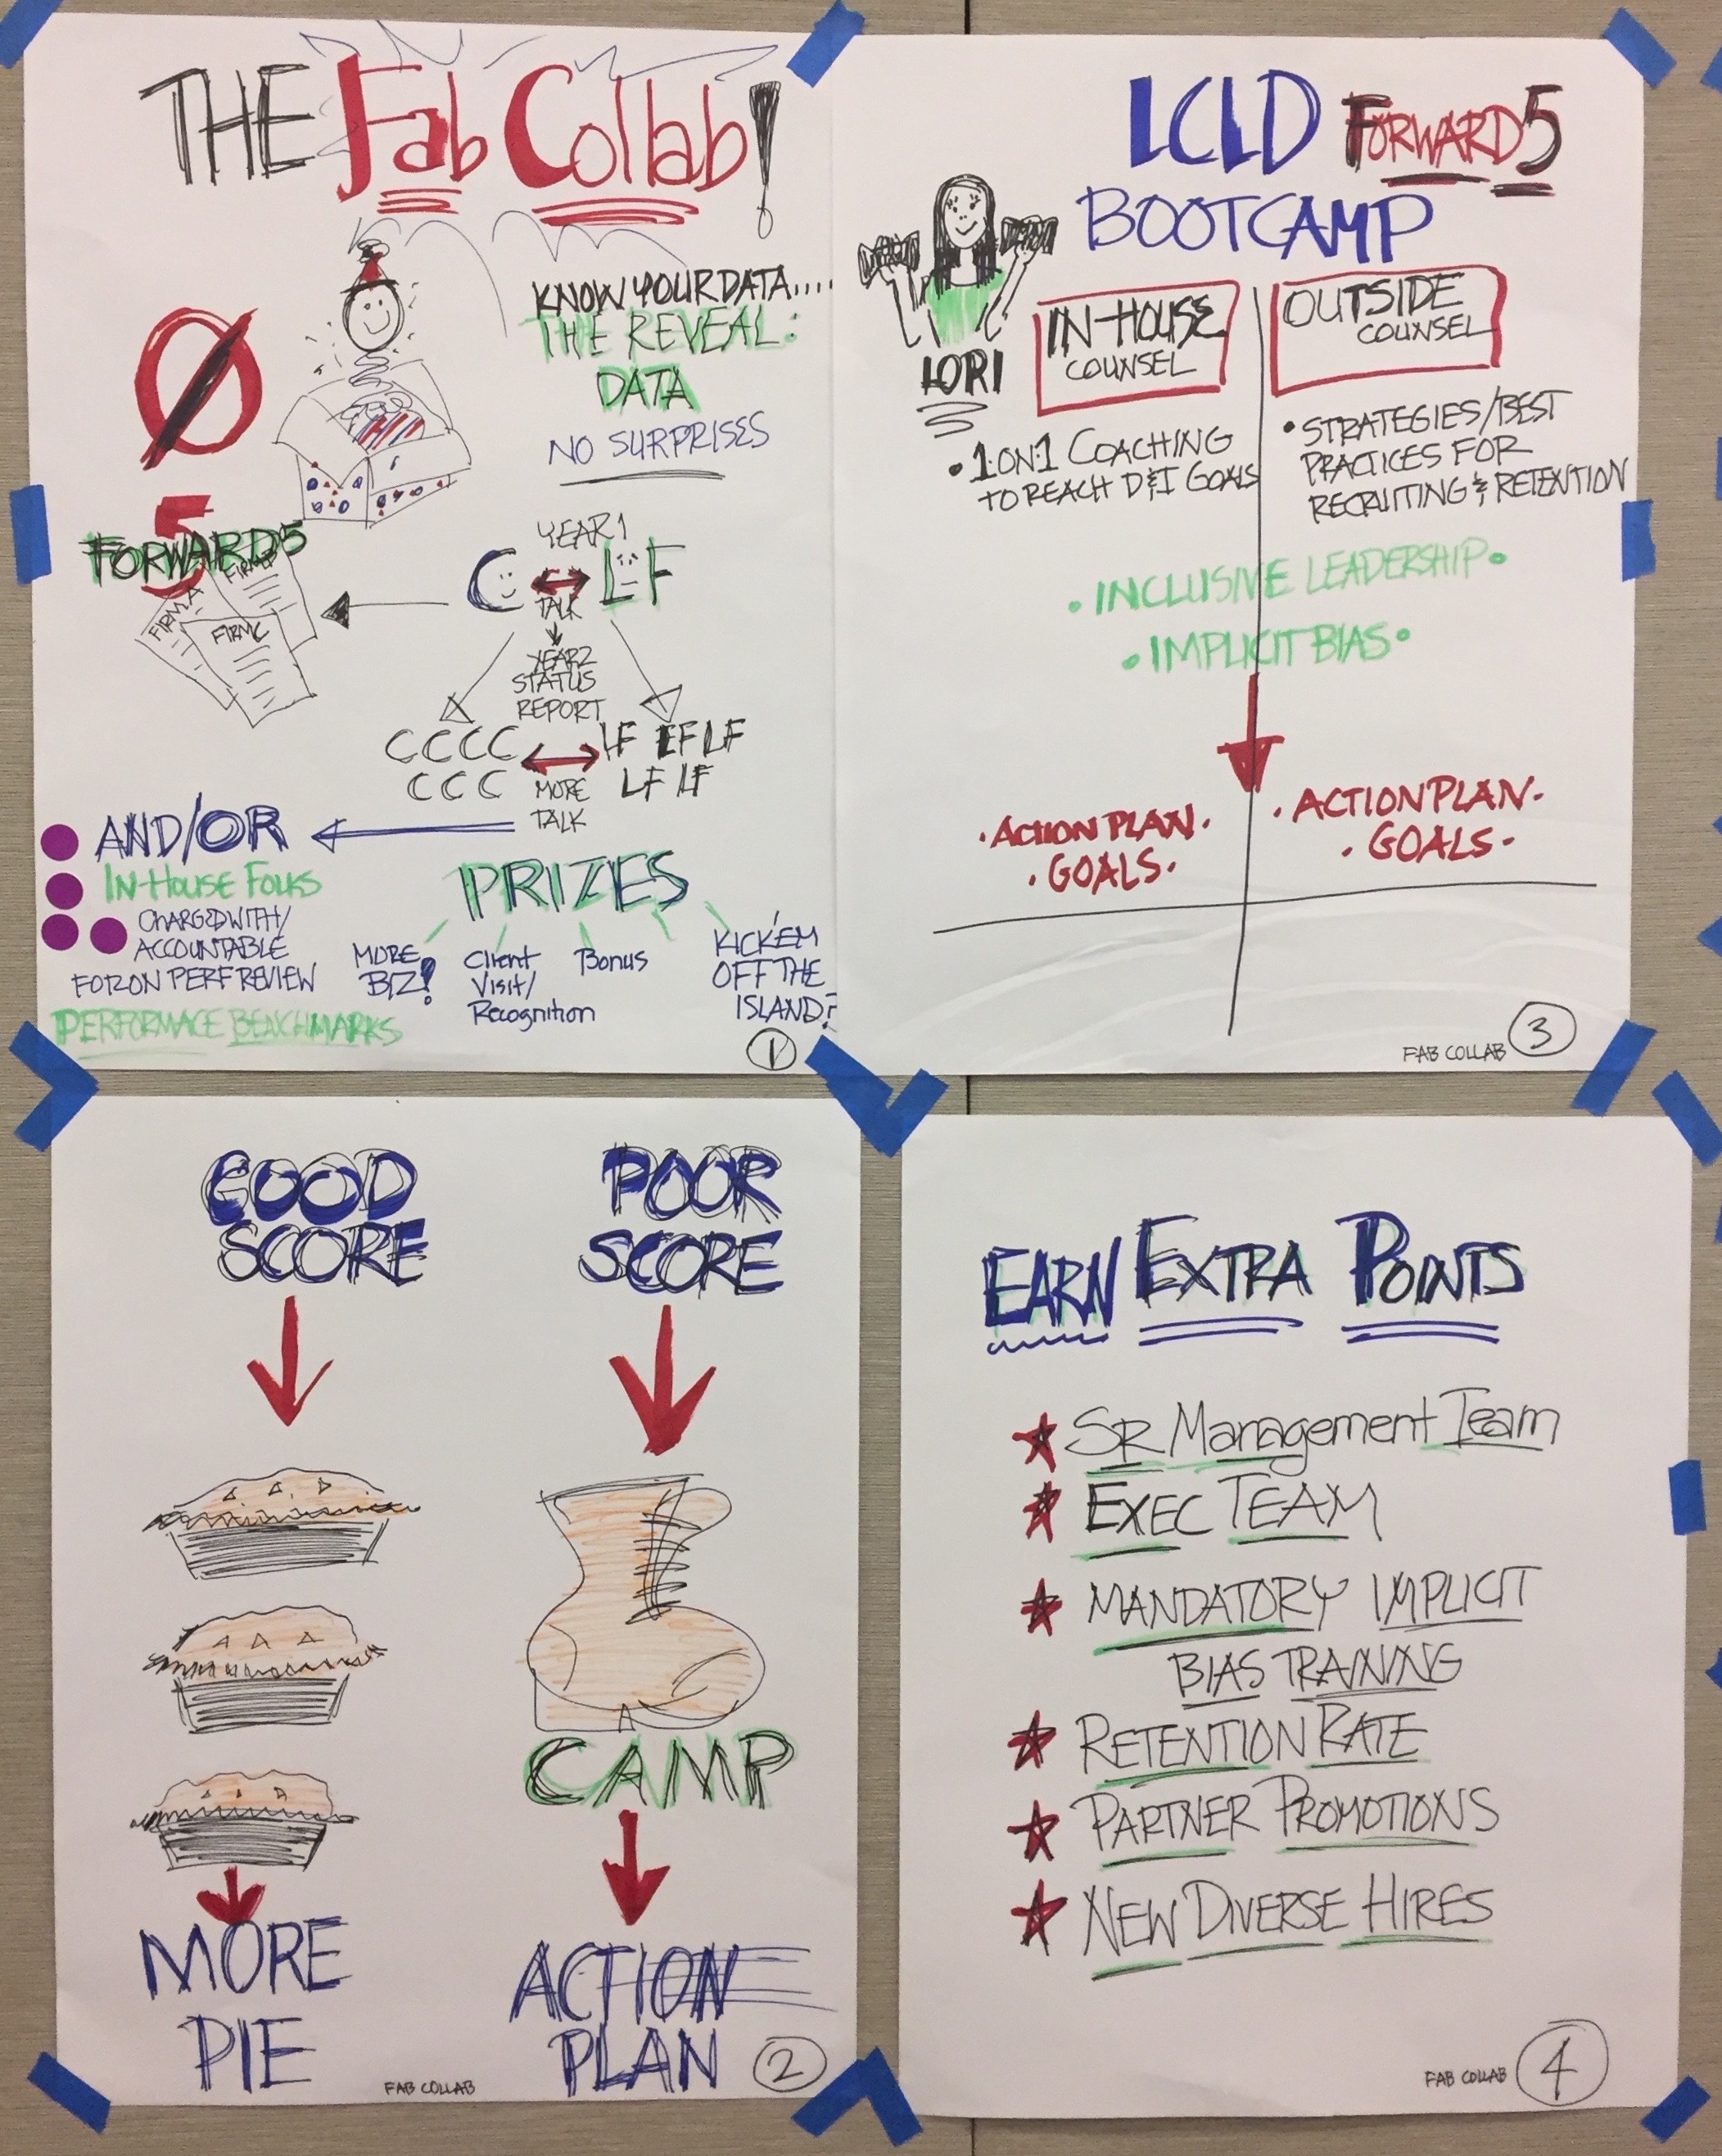 THE Fab Collab!
KNOW YOUR DATA....
THE REVEAL:
DATA
NO SURPRISES
5
FORWARD5
FIRM A
FIRM C
YEAR 1
C LF
TALK
YEAR 2
STATUS
REPORT
CCCC LF LF LF
CCC LF LF
MORE
TALK
AND/OR
IN-HOUSE FOLKS
CHARGED WITH/
ACCOUNTABLE
FOR ON PERF REVIEW
PERFORMACE BENCHMARKS
PRIZES
MORE
BIZ!
Client
Visit/
Recognition
Bonus
KICK'EM
OFF THE
ISLAND?
1
LCLD FORWARD5
BOOTCAMP
LORI
IN-HOUSE
COUNSEL
• 1:ON:1 COACHING
TO REACH D&I GOALS
OUTSIDE
COUNSEL
• STRATEGIES/BEST
PRACTICES FOR
RECRUITING & RETENTION
• INCLUSIVE LEADERSHIP •
• IMPLICIT BIAS •
• ACTION PLAN •
• GOALS •
• ACTION PLAN •
• GOALS •
FAB COLLAB 3
GOOD
SCORE
MORE
PIE
POOR
SCORE
CAMP
ACTION
PLAN
FAB COLLAB 2
EARN EXTRA POINTS
SR Management Team
EXEC TEAM
MANDATORY IMPLICIT
BIAS TRAINING
RETENTION RATE
PARTNER PROMOTIONS
NEW DIVERSE HIRES
FAB COLLAB 4